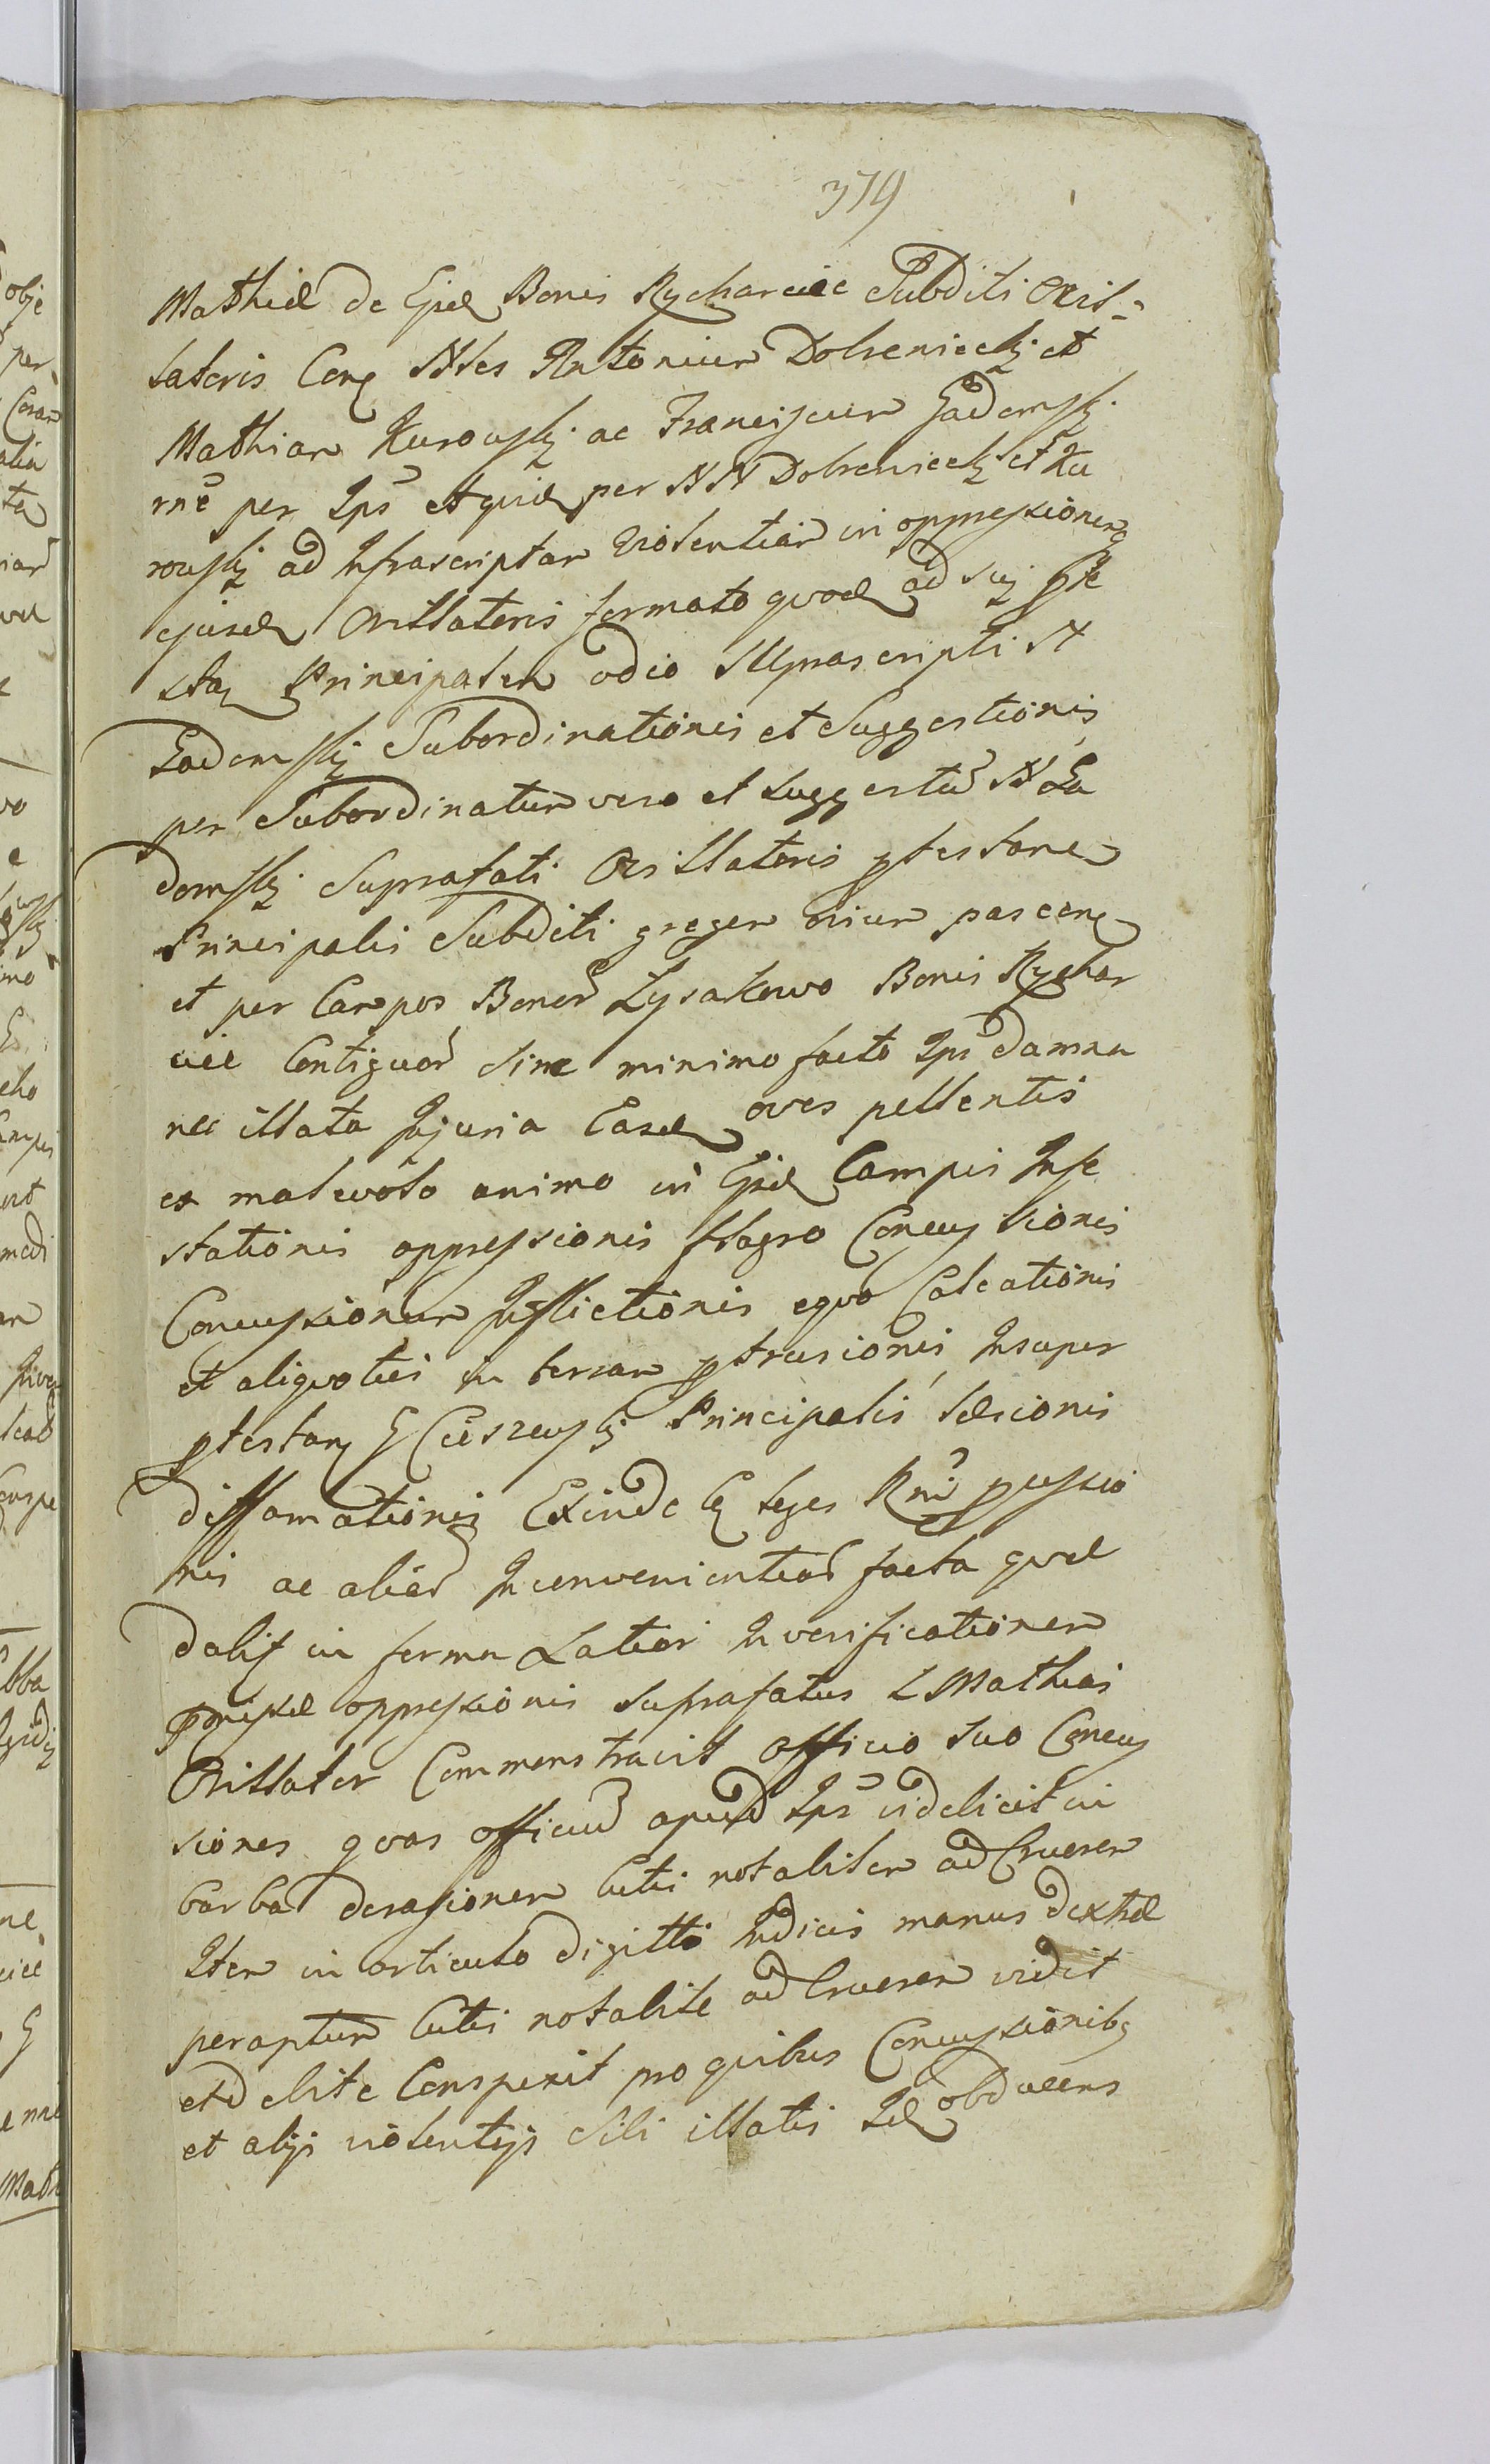 379
Mathiae de Ijsd Bonis Rycharcice Subditi Ovil-
latoris Conq NNles Antonium Dobrenieckj et
Mathiam Kurowskj ac Franciscum Gadomskj
rne per Ips et quid per NN Dobrenieckj et Ku
rowskj ad Infrascriptam violentiam in oppressionem
ejusd Ovillatoris formato quod ad sui pte
stan Principalem odio Suprascripti N
Gadomskj Subordinationis et Suggestionis
per Subordinatum vero et Suggestu N Ga
domskj Suprafati Ovillatoris ptestane
Principalis Subditi gregem ovium pascen
et per Campos Bonor Lysakowo Bonis Rychar
cice Contiguor sine minimo facto Ips damna
nec illata Injuria Easd oves pellentis
ex malevolo animo in Ijsd Campis Infe
stationis oppressionis flagro Concussionis
Concussionum Inflictionis equo Calcationis
et aliquoties in terram ptrusionis Insuper
ptestan G Cieszewskj Principalis
diffamationis Exinde leges Rni
nis ac aliar Inconvenientiar facta qude
dalis in forma Latiori In verificationem
oppressionis Suprafatus L Mathias
Ovillator Commonstravit officio suo Concus
siones quas officiu apud Ips videlicet in
barba derasionem Cutis notabiliter ad Cruorem
Item in articulo digitti Indicis manus dextrae
peraptum Cutis notabile ad Cruorem vidit
et debite Conspexit pro quibus Concussionibq
et alijs violentijs Sibi illatis Id obducens